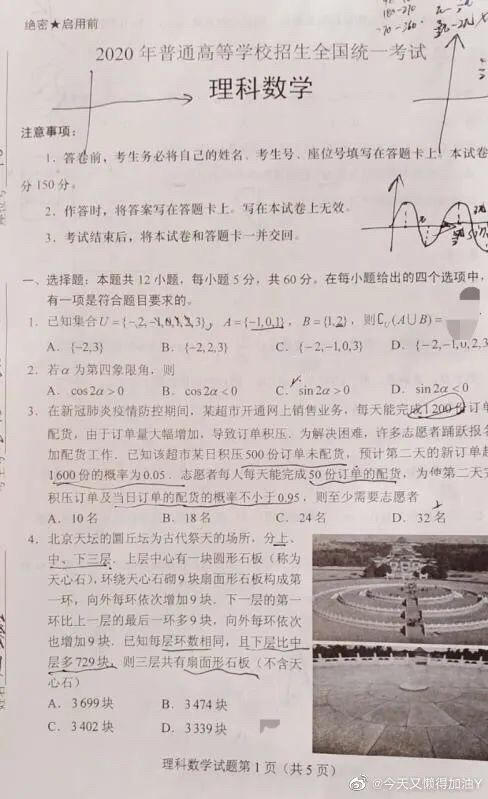 绝密★启用前
2020 年普通高等学校招生全国统一考试
理科数学
注意事项：
1．答卷前，考生务必将自己的姓名、考生号、座位号填写在答题卡上。本试卷
分 150 分。
2．作答时，将答案写在答题卡上。写在本试卷上无效。
3．考试结束后，将本试卷和答题卡一并交回。
一、选择题：本题共 12 小题，每小题 5 分，共 60 分。在每小题给出的四个选项中，
有一项是符合题目要求的。
1．已知集合U={-2,-1,0,1,2,3}，A={-1,0,1}，B={1,2}，则∁U(A∪B)=
A．{-2,3} B．{-2,2,3} C．{-2,-1,0,3} D．{-2,-1,0,2,3
2．若α为第四象限角，则
A．cos2α>0 B．cos2α<0 C．sin2α>0 D．sin2α<0
3．在新冠肺炎疫情防控期间，某超市开通网上销售业务，每天能完成1200份订单
配货，由于订单量大幅增加，导致订单积压．为解决困难，许多志愿者踊跃报名
加配货工作．已知该超市某日积压500份订单未配货，预计第二天的新订单超
1600份的概率为0.05．志愿者每人每天能完成50份订单的配货，为使第二天完
积压订单及当日订单的配货的概率不小于0.95，则至少需要志愿者
A．10名 B．18名 C．24名 D．32名
4．北京天坛的圜丘坛为古代祭天的场所，分上、
中、下三层．上层中心有一块圆形石板（称为
天心石），环绕天心石砌9块扇面形石板构成第
一环，向外每环依次增加9块．下一层的第一
环比上一层的最后一环多9块，向外每环依次
也增加9块．已知每层环数相同，且下层比中
层多729块，则三层共有扇面形石板（不含天
心石）
A．3699块 B．3474块
C．3402块 D．3339块
理科数学试题第 1 页（共 5 页）
@今天又懒得加油Y